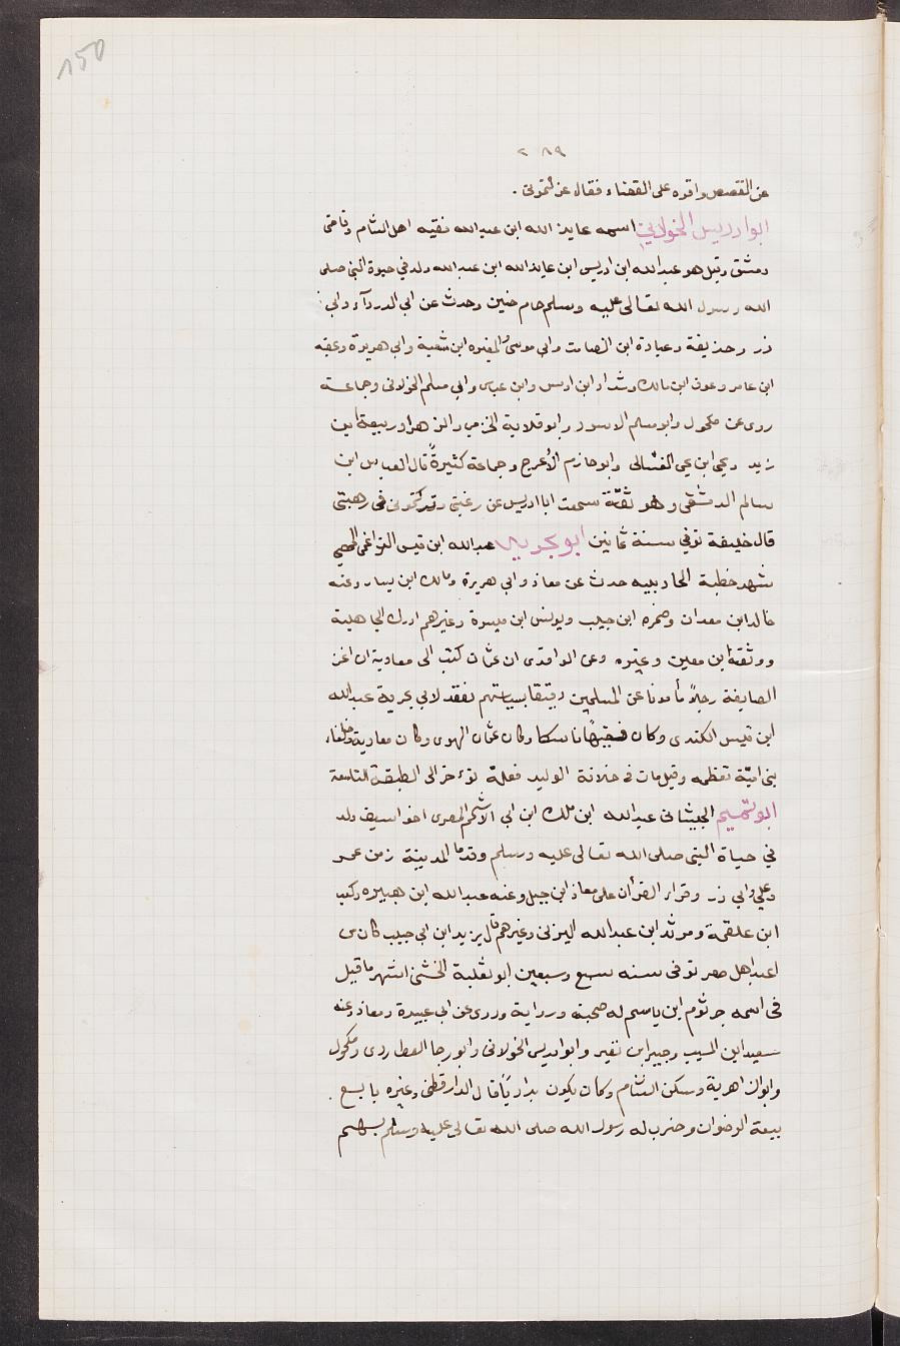 150
٢٨٩
عن القصص واقره على القضاء فقال عزلتمونى .
ابو ادريس الخولاني اسمه عايذ الله ابن عبد الله فقيه اهل الشام وقاضى
دمشق وقيل هو عبد الله ابن ادريس ابن عايذ الله ابن عبد الله ولد في حيوة النبي صلى
الله رسول الله تعالى عليه وسلم عام حنين وحدث عن ابي الدردآء وابي
ذر وحذيفة وعبادة ابن الصامت وابي موسى والمغيره ابن شعبة وابي هريرة وعقبه
ابن عامر وعوف ابن مالك وشداد ابن اوس وابن عباس وابي مسلم الخولانى وجماعة
روى عن مكحول وابو سلام الاسود وابو قلابة الجرمي والزهرا وربيعة ابن
زيد ويحيى ابن يحيى الغسّانى وابو حازم الأعرج وجماعة كثيرةً قال العباس ابن
سالم الدمشقى وهو ثقّة سمعت ابا ادريس عن رغبتى وتركتمونى فى رهبتى
قال خليفة توفي سنة ثمانين ابو بحريه عبد الله ابن قيس التراغمى الحمصي
شهد خطبة الجاربيه حدث عن معاذ وابي هريرة ومالك ابن يسار وعنه
خالد ابن معدان وضمره ابن حبيب ويونس ابن ميسرة وغيرهم ادرك الجاهلية
ووثقه ابن معين وغيره وعن الواقدى ان عثمان كتب الى معاوية ان اغز
الصايفة رجلاً مأمونا عن المسلمين رفيقا بسياستهم فعقد لابي بحرية عبد الله
ابن قيس الكندى وكان فقيهًا ناسكا وكان عثمان الهوى وكان معاوية وخلفاء
بنى اميّة تعظمه وقيل مات فى خلافة الوليد فعلهّ تؤخر الى الطبقة التاسعة
ابو تميم الجيشانى عبد الله ابن ملك ابن ابي الاشحم المصرى اخو اسيف ولد
في حياة النبى صلى الله تعالى عليه وسلم وقدما المدينة زمن عمر
وعلي وابي ذر وقراء القرأن على معاذ ابن جبل وعنه عبد الله ابن هبيره وكعب
ابن علقمة ومرثد ابن عبد الله اليزنى وغيرهم قال يزيد ابن ابي حبيب كان من
اعبد اهل مصر توفى سنه سبع وسبعين ابو ثعلبة الخشنى اشهر ما قيل
فى اسمه جرثوم ابن ياسم له صحبة ورواية وروى عن ابى عبيدة ومعاذ وعنه
سعيد ابن المسيب وجبير ابن نفير وابو ادريس الخولانى وابو رجا العطاردى ومكحول
وابو الزاهرية وسكن الشام وكان يكون بداريّا قال الدارقطنى وغيره بايع
بيعة الرضوان وضرب له رسول الله صلى الله تعالى عليه وسلم بسهم